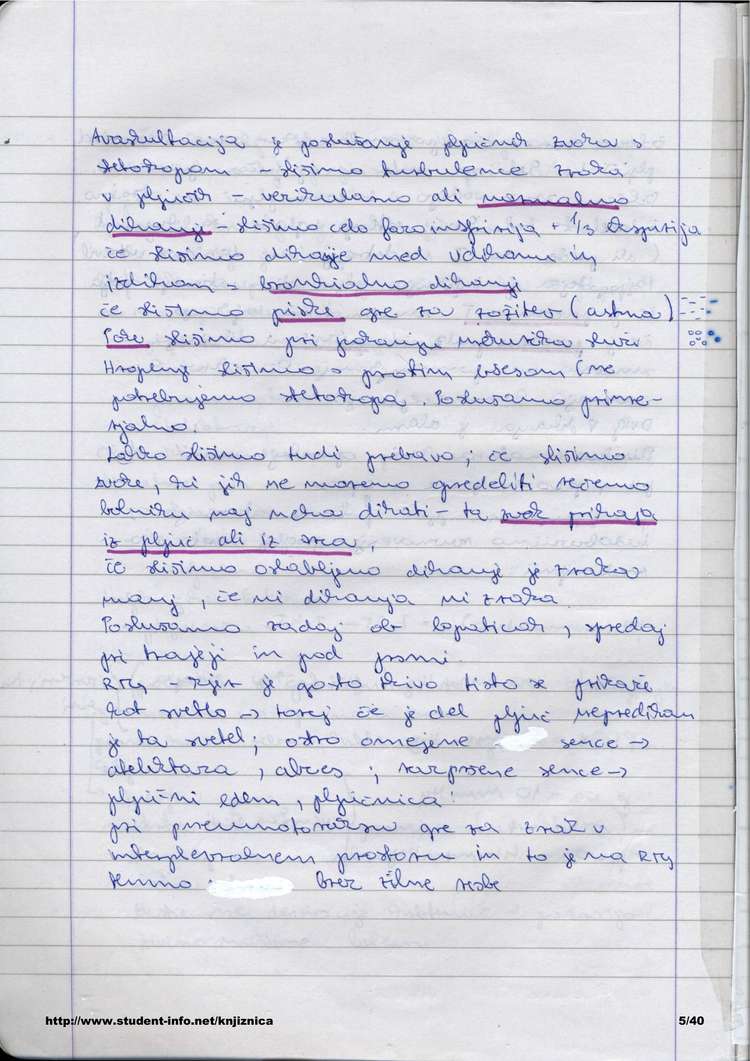 Avskultacija je poslušanje pljučnih zvokov s
stetoskopom - slišimo turbulence zraka
v pljučih - vezikularno ali normalno
dihanje - slišimo celo fazo inspirija + 1/3 ekspirija
če slišimo dihanje med vdihom in
izdihom = bronhialno dihanje
če slišimo piske gre za zožitev (astma)
Poke slišimo pri
Hropenje slišimo s prostim ušesom (ne
potrebujemo stetoskopa. Poslušamo primer-
jalno.
Lahko slišimo tudi prebavo; če slišimo
zvoke, ki jih ne moremo opredeliti rečemo
bolniku naj neha dihati - ta zvok prihaja
iz pljuč ali iz srca.
če slišimo oslabljeno dihanje je zraka
manj, če ni dihanja ni zraka.
Poslušamo zadaj ob lopaticah, spredaj
pri in pod prsmi.
RTG - kjer je gosto tkivo tisto se prikaže
kot svetlo → torej če je del pljuč nepredihan
je ta svetel; ostro omejene sence →
atelektaza, absces; razpršene sence →
pljučni edem, pljučnica!
pri pneumotoraksu gre za zrak v
interplevralnem prostoru in to je na RTG
temno brez žilne risbe
http://www.student-info.net/knjiznica
5/40